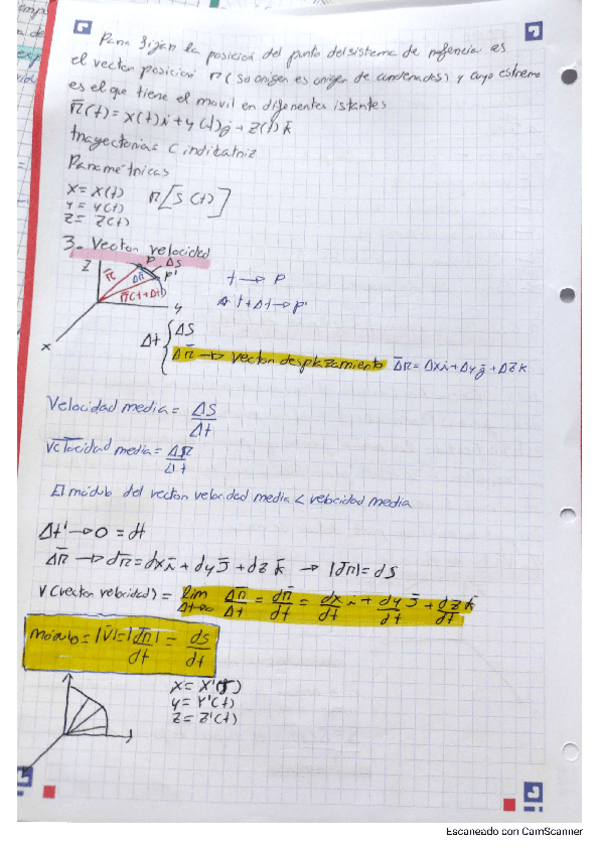 Para fijar la posición del punto del sistema de referencia es
el vector posición r (su origen es origen de coordenadas) y cuyo extremo
es el que tiene el movil en diferentes istantes
r̄(t) = x(t)i + y(t)j + z(t)k̄
trayectorias C indicatriz
Paramétricas
x = x(t)
y = y(t)
z = z(t)
r[S(t)]
3. Vector velocidad
z P ΔS
r̄ Δr̄ P'
r̄(t+Δt)
y
x
t → P
t+Δt → P'
Δt { ΔS
Δr̄ → vector desplazamiento Δ̄r = Δxi + Δyj + Δzk
Velocidad media = ΔS/Δt
Velocidad media = Δr/Δt
El módulo del vector velocidad media < velocidad media
Δt' → 0 = dt
Δr̄ → dr̄ = dx i + dy j + dz k̄ → |dr̄| = ds
V (vector velocidad) = lim Δt→0 Δr̄/Δt = dr̄/dt = dx/dt i + dy/dt j + dz/dt k̄
módulo = |v̄| = |dr̄|/dt = ds/dt
y = Y'(t)
z = Z'(t)
Escaneado con CamScanner